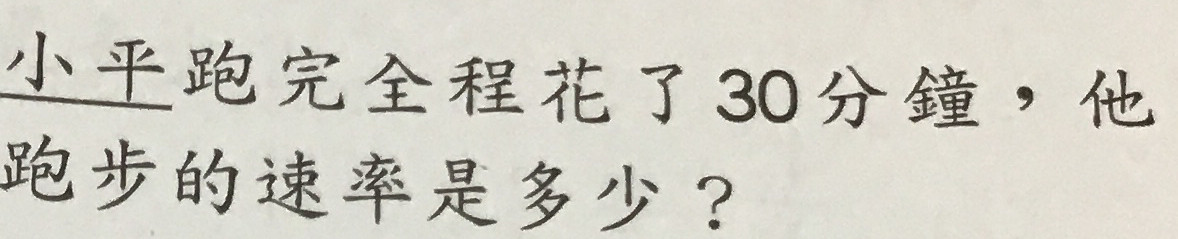 小平跑完全程花了30分鐘，他
跑步的速率是多少？